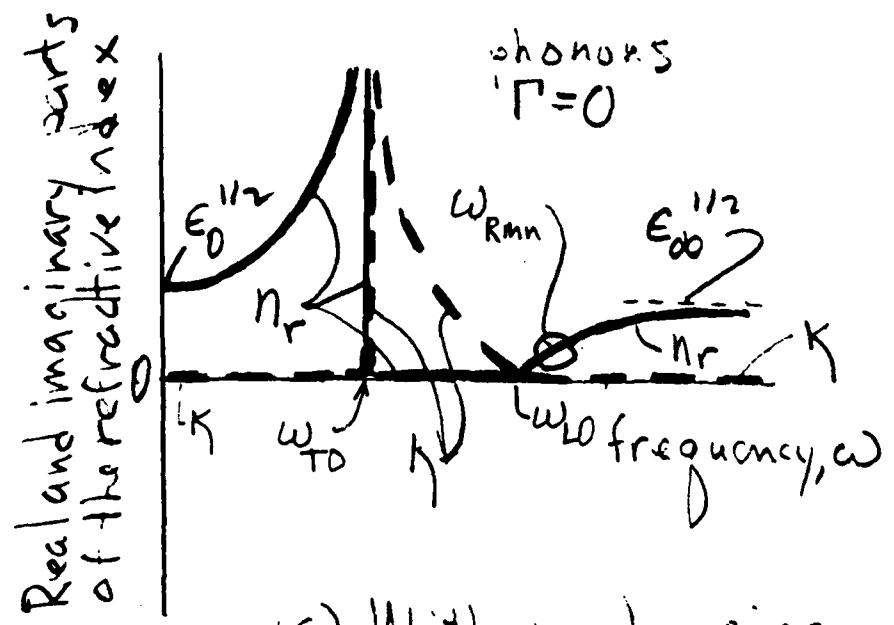 Real and imaginary parts
of the refractive index
phonons
Γ=0
ε₀^1/2
ω_Rmn
ε∞^1/2
n_r
n_r
κ
0
κ
ω_TO
κ
ω_LO
frequency, ω